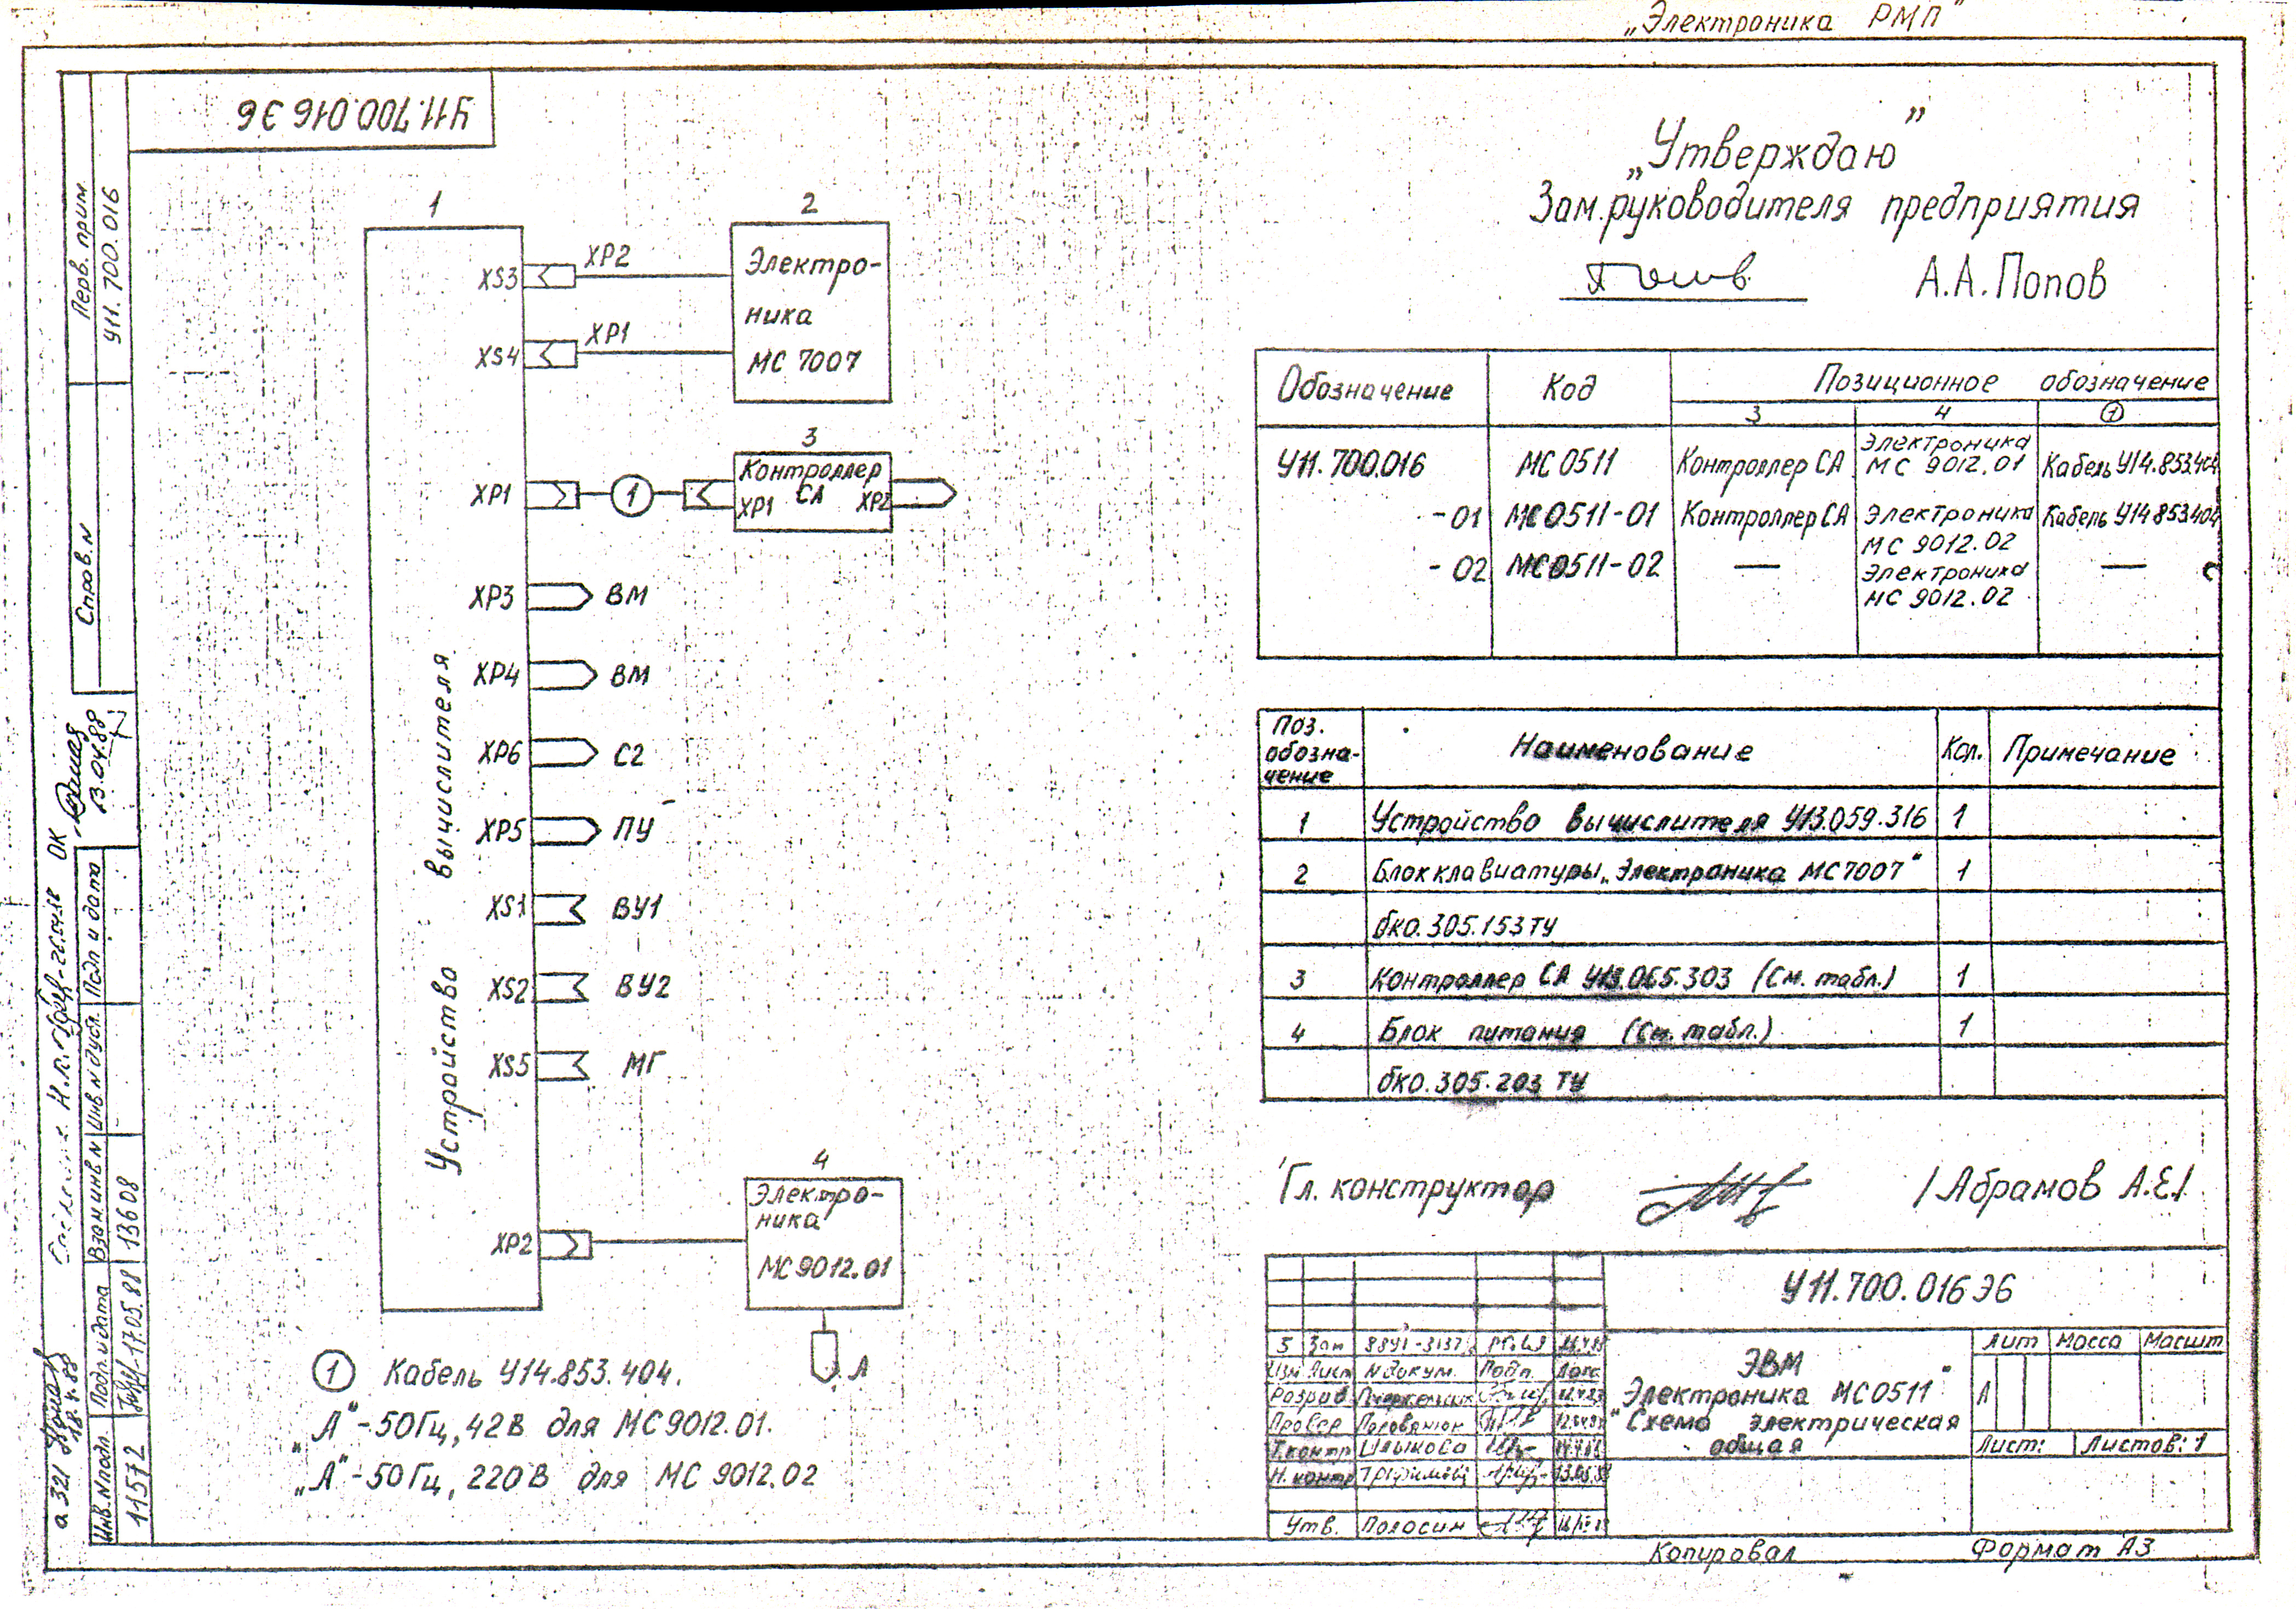 „Электроника РМП"
У11.700.016 Э6
Перв. прим.
У11.700.016
Справ. N
Подп и дата
Инв N дубл.
Взам инв N
13608
Подп. и дата
17.05.88
Инв. N подл
11572
ОК
13.04.88
а 321
18.4.88
1
XS3
XP2
XS4
XP1
2
Электро-
ника
МС 7007
XP1
1
3
Контроллер
СА
XP1
XP2
XP3
ВМ
XP4
ВМ
XP6
С2
XP5
ПУ
XS1
ВУ1
XS2
ВУ2
XS5
МГ
XP2
Устройство вычислителя
4
Электро-
ника
МС9012.01
А
1 Кабель У14.853.404.
„А"-50Гц, 42В для МС9012.01.
„А"-50Гц, 220В для МС 9012.02
„Утверждаю"
Зам.руководителя предприятия
А.А.Попов
Обозначение Код Позиционное обозначение
3 4 1
У11.700.016 МС 0511 Контроллер СА Электроника МС 9012.01 Кабель У14.853.404
-01 МС0511-01 Контроллер СА Электроника МС 9012.02 Кабель У14.853.404
-02 МС0511-02 — Электроника МС 9012.02 —
Поз. обозна-чение Наименование Кол. Примечание
1 Устройство вычислителя У13.059.316 1
2 Блок клавиатуры „Электроника МС7007" 1
бко.305.153ТУ
3 Контроллер СА У13.065.303 (См. табл.) 1
4 Блок питания (См. табл.) 1
бко.305.203 ТУ
Гл. конструктор /Абрамов А.Е./
У11.700.016Э6
5 Зам 88У1-3137
Изм Лист N докум. Подп. Дата
Разраб
Провер
Т.контр
Н. контр
Утв. Полосин
ЭВМ
„Электроника МС0511"
Схема электрическая
общая
Лит Масса Масшт
А
Лист: Листов: 1
Копировал Формат А3